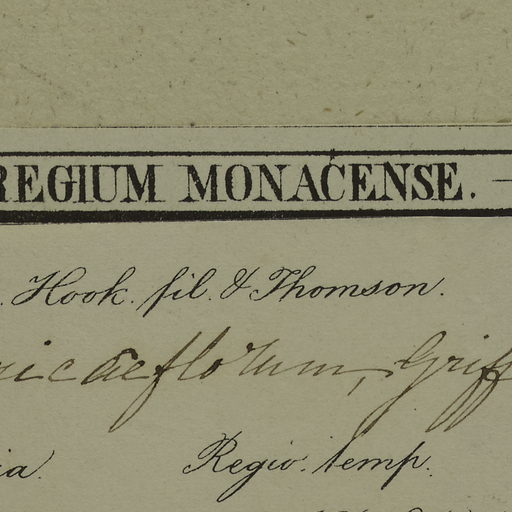 REGIUM MONACENSE. —
. Hook. fil. & Thomson.
icaeflorum, Griff
ia. Regio. temp.